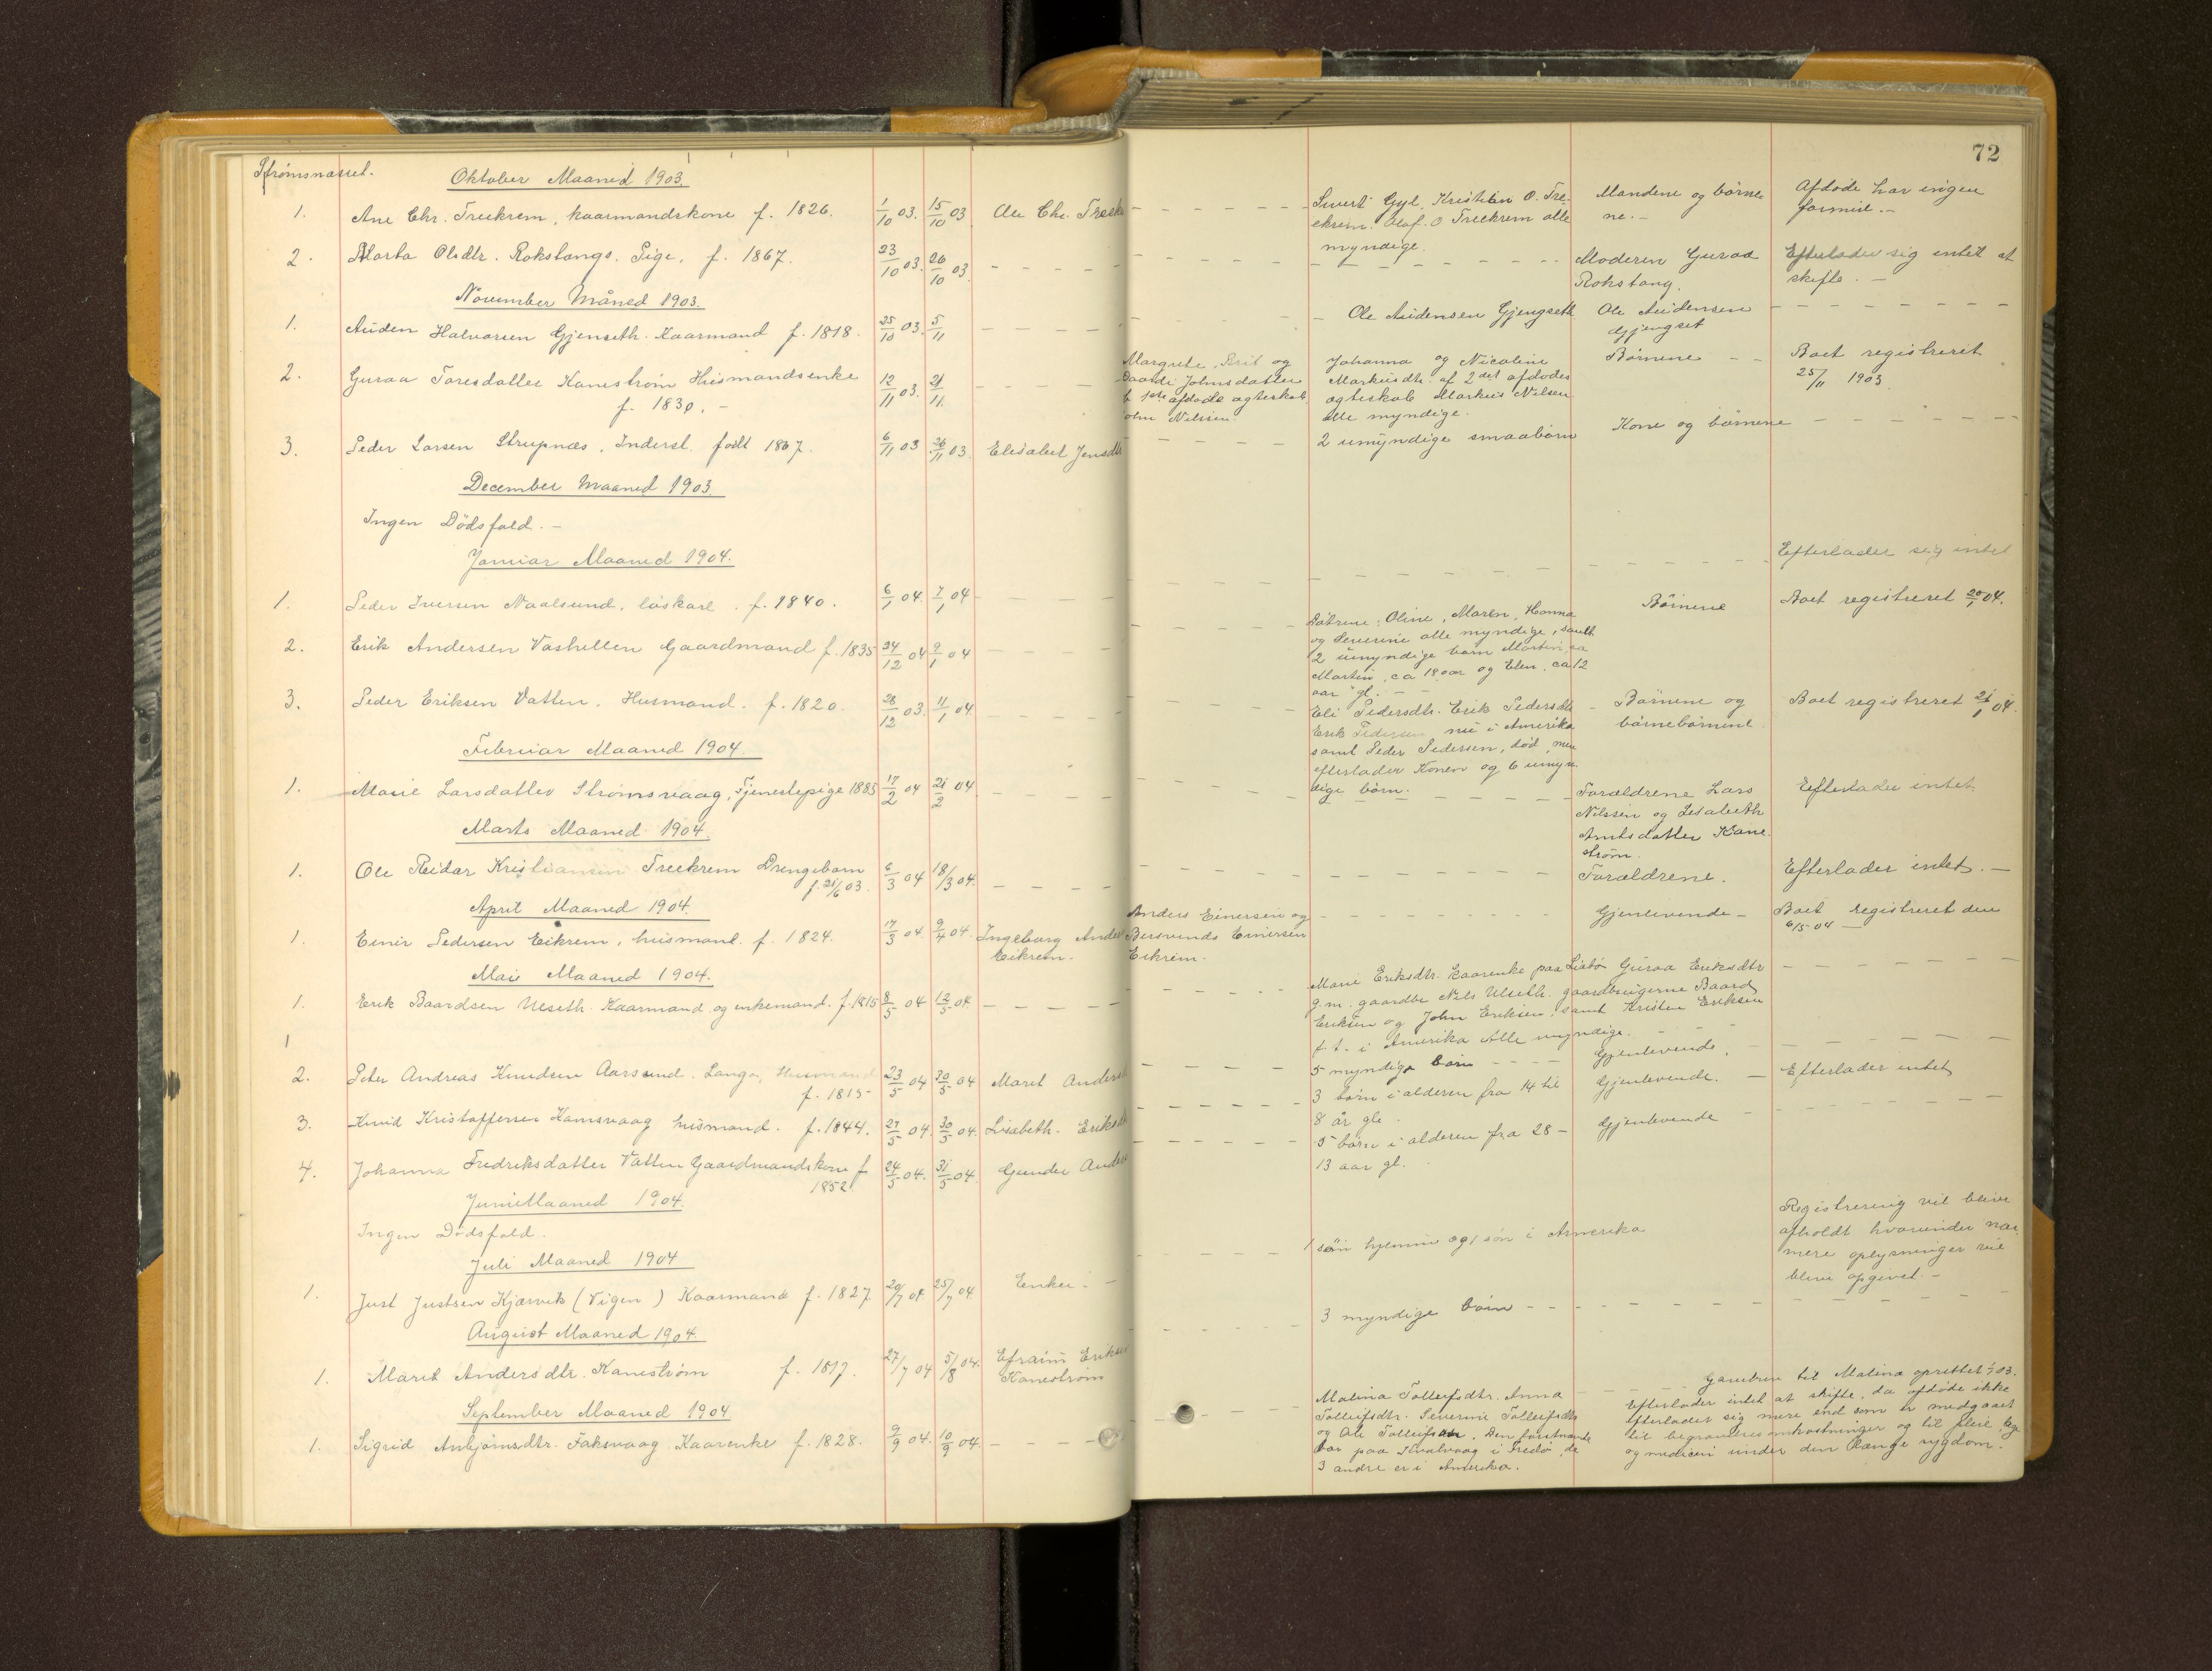 72
Strømsnæsset.
Oktober Maaned 1903.
1. Ane Chr. Treekrem, kaarmandskone f. 1826. 1/10 03. 15/10 03 Ole Chr. Treek
Sivert Gyl, Kristian O. Tre-
ekrem. Olaf. O Treekrem alle
myndige.
Mandene og børne
ne. -
Afdøde har ingen
formue. -
2. Marta Olsdtr. Rokstangs. Pige. f. 1867. 23/10 03. 26/10 03.
Moderen Guraa
Rokstang.
Efterlader sig intet at
skifte. -
November Måned 1903.
1. Auden Halvorsen Gjenseth. Kaarmand f. 1818. 25/10 03. 5/11
Ole Audensen Gjengseth
Ole Audensen
Gjengset
2. Guraa Toresdatter Kanestrøm Husmandsenke 12/11 03. 21/11.
f. 1830. -
Margrete, Brit og
Baardi Johnsdatter
1ste afdøde ægteskab
John Nilssen
Johanna og Nicoline
Markusdtr. af 2det afdødes
ægteskab Markus Nilsen
alle myndige.
Børnene
Boet registreret
25/11 1903
3. Peder Larsen Strupnæs. Inderst. født 1867. 6/11 03 26/11 03. Elisabet Jensdtr
2 umyndige smaabørn
Kone og børnene
December Maaned 1903.
Ingen Dödsfald. -
Januar Maaned 1904.
1. Peder Iversen Naalsund, løskarl. f. 1840. 6/1 04. 7/1 04
Efterlader sig intet
2. Erik Andersen Vashellen Gaardmand f. 1835 24/12 04 9/1 04
Døtrene: Oline, Maren, Hanna
og Severine alle myndige, samt
2 umyndige børn Martin ca
Martin, ca 18 aar og Elen, ca 12
aar gl.
Börnene
Boet registreret 20/1 04.
3. Peder Eriksen Vatten. Husmand. f. 1820. 28/12 03. 11/1 04.
Eli Pedersdtr. Erik Pedersdtr
Erik Pedersen nu i Amerika
samt Peder Pedersen, død, men
efterlader Konen og 6 umyn-
dige børn.
Børnene og
børnebørnene
Boet registreret 21/1 04.
Februar Maaned 1904.
1. Marie Larsdatter Strømsvaag, Tjenestepige 1885 17/2 04 21/2 04
Forældrene Lars
Nilssen og Lisabeth
Arntsdatter Kane-
strøm.
Efterlader intet.
Marts Maaned 1904.
1. Ole Reidar Kristiansen Treekrem Drengebarn 6/3 04 18/3 04.
f. 21/6 03.
Forældrene.
Efterlader intet. -
April Maaned 1904.
1. Einir Pedersen Eikrem, husmand. f. 1824. 17/3 04 9/4 04. Ingeborg Ander
Eikrem.
Anders Einersen og
Bersvends Einersen
Eikrem.
Gjenlevende -
Boet registreret den
6/5 04
Mai Maaned 1904.
1. Erik Baardsen Ulseth. Kaarmand og enkemand. f. 1815 8/5 04 12/5 04.
Marie Eriksdtr. kaarenke paa Liabø Guraa Eriksdtr
g.m. gaardbr Nils Ulseth. gaardbrugerne Baard
Eriksen og John Eriksen, samt Kristen Eriksen
f. t. i Amerika Alle myndige.
1
2. Peter Andreas Knudsen Aarsund. Langø, Husmand 23/5 04 30/5 04 Marit Anders
f. 1815
5 myndige børn
Gjenlevende.
3. Knud Kristoffersen Kamsvaag husmand. f. 1844. 27/5 04. 30/5 04. Lisabeth. Eriksd
3 børn i alderen fra 14 til
8 år gle.
Gjenlevende.
Efterlader intet
4. Johanna Fredriksdatter Vatten Gaardmandskone f 24/5 04. 31/5 04. Gunder Anders
1852.
5 børn i alderen fra 28 -
13 aar gl.
Gjenlevende
Juni Maaned 1904.
Ingen Dødsfald.
Juli Maaned 1904
1. Just Justsen Kjørvik (Vigen) Kaarmand f. 1827. 20/7 04 25/7 04 Enke. -
1 søn hjemme og 1 søn i Amerika
Registrering vil blive
afholdt hvorunder nær-
mere oplysninger vil
blive opgivet. -
August Maaned 1904.
1. Marit Andersdtr. Kanestrøm f. 1817. 27/7 04 5/8 04. Efraim Eriksen
Kanestrøm
3 myndige børn
September Maaned 1904
1. Sigrid Anbjørnsdtr. Faksvaag Kaarenke f. 1828. 9/9 04. 10/9 04.
Malina Tollefsdtr. Anna
Tollefsdtr. Severine Tollefsdtr
og Ole Tollefsen. Den førstnævnte
bor paa Kvalvaag i Fredø, de
3 andre er i Amerika.
Gavebrev til Malina oprettet 1/7 03.
Efterlader intet at skifte, da afdøde ikke
efterlader sig mere end som er medgaaet
til begravelses omkostninger og til pleie, læge
og medicin under den længe sygdom.